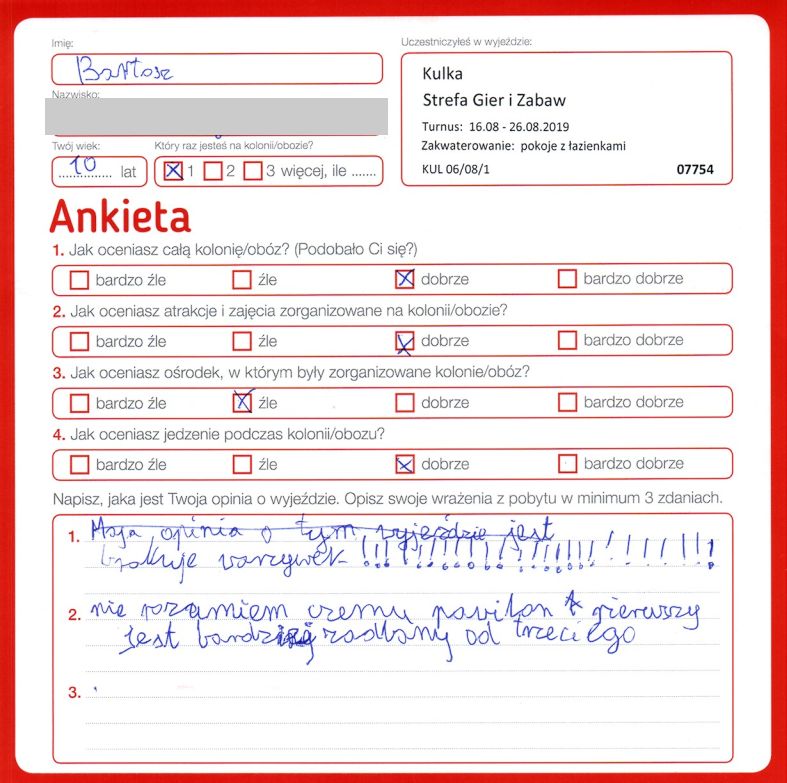 Imię:
Uczestniczyłeś w wyjeździe:
Bartosz
Kulka
Strefa Gier i Zabaw
Nazwisko:
Turnus: 16.08 - 26.08.2019
Zakwaterowanie: pokoje z łazienkami
Twój wiek: Który raz jesteś na kolonii/obozie?
10 lat 1 2 3 więcej, ile .......
KUL 06/08/1 07754
Ankieta
1. Jak oceniasz całą kolonię/obóz? (Podobało Ci się?)
bardzo źle źle dobrze bardzo dobrze
2. Jak oceniasz atrakcje i zajęcia zorganizowane na kolonii/obozie?
bardzo źle źle dobrze bardzo dobrze
3. Jak oceniasz ośrodek, w którym były zorganizowane kolonie/obóz?
bardzo źle źle dobrze bardzo dobrze
4. Jak oceniasz jedzenie podczas kolonii/obozu?
bardzo źle źle dobrze bardzo dobrze
Napisz, jaka jest Twoja opinia o wyjeździe. Opisz swoje wrażenia z pobytu w minimum 3 zdaniach.
1. Moja opinia o tym wyjeździe jest
brakuje warzywek !!!!!!!!!!!!!!!!!!!!!!!!
2. nie rozumiem czemu pawilon pierwszy
jest bardziej zadbany od trzeciego
3.